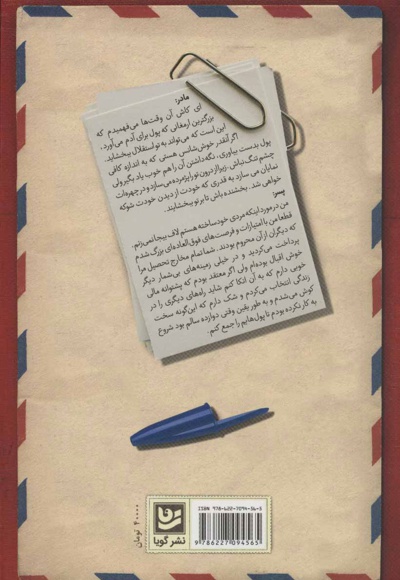 مادر:
ای کاش آن وقت‌ها می‌فهمیدم که
بزرگترین ارمغانی که پول برای آدم می‌آورد،
این است که می‌تواند به تو استقلال ببخشاید.
اگر آنقدر خوش‌شانسی هستی که به اندازه کافی
پول بدست بیاوری، نگه‌داشتن آن را هم خوب یاد بگیر ولی
چشم تنگ نباش. زیرا از درون تو را پژمرده می‌سازد و در چهره‌ات
نمایان می سازد به قدری که خودت از دیدن خودت شوکه
خواهی شد. بخشنده باش تا بر تو ببخشایند.
پسر:
من در مورد اینکه مردی خودساخته هستم لاف بیجا نمی‌زنم.
قطعا من با امتیازات و فرصت‌های فوق العاده‌ای بزرگ شدم
که دیگران از آن محروم بودند. شما تمام مخارج تحصیل مرا
پرداخت می‌کردید و در خیلی زمینه‌های بی‌شمار دیگر
خوش اقبال بوده‌ام ولی اگر معتقد بودم که پشتوانه مالی
خوبی دارم که به آن اتکا کنم شاید راه‌های دیگری را در
زندگی انتخاب می‌کردم و شک دارم که این‌گونه سخت
کوش می‌شدم و به طور یقین وقتی دوازده سالم بود شروع
به کار نکرده بودم تا پول‌هایم را جمع کنم.
نشر گویا
۴۰۰۰۰ تومان
ISBN 978-622-7094-56-5
9 786227 094565